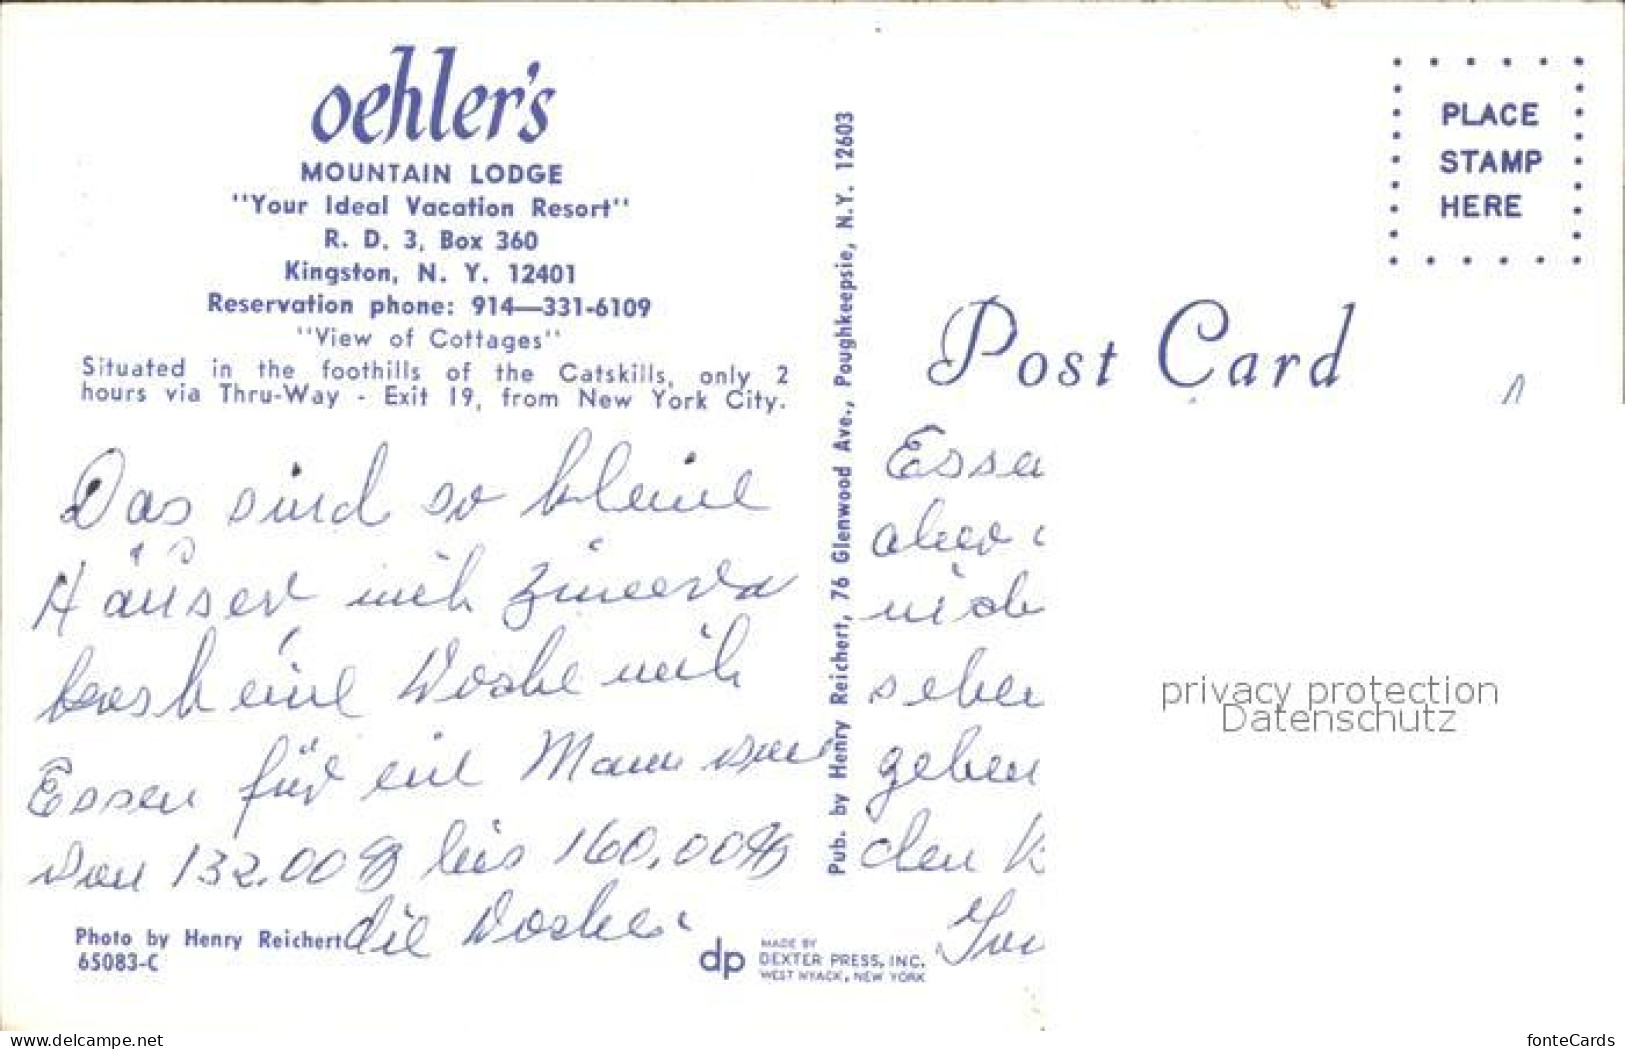 oehler's
MOUNTAIN LODGE
"Your Ideal Vacation Resort"
R. D. 3, Box 360
Kingston, N. Y. 12401
Reservation phone: 914—331-6109
"View of Cottages"
Situated in the foothills of the Catskills, only 2
hours via Thru-Way - Exit 19, from New York City.
Das sind so kleine
Häuser mit
eine Woche mit
Essen für ein Mann von
von 132.00 $ bis 160,00 $
die Woche.
Photo by Henry Reichert
65083-C
dp
MADE BY
DEXTER PRESS, INC.
WEST NYACK, NEW YORK
Pub. by Henry Reichert, 76 Glenwood Ave., Poughkeepsie, N.Y. 12603
PLACE
STAMP
HERE
Post Card
Esse
aber
nich
geben
den K
privacy protection
Datenschutz
www.delcampe.net
fonteCards